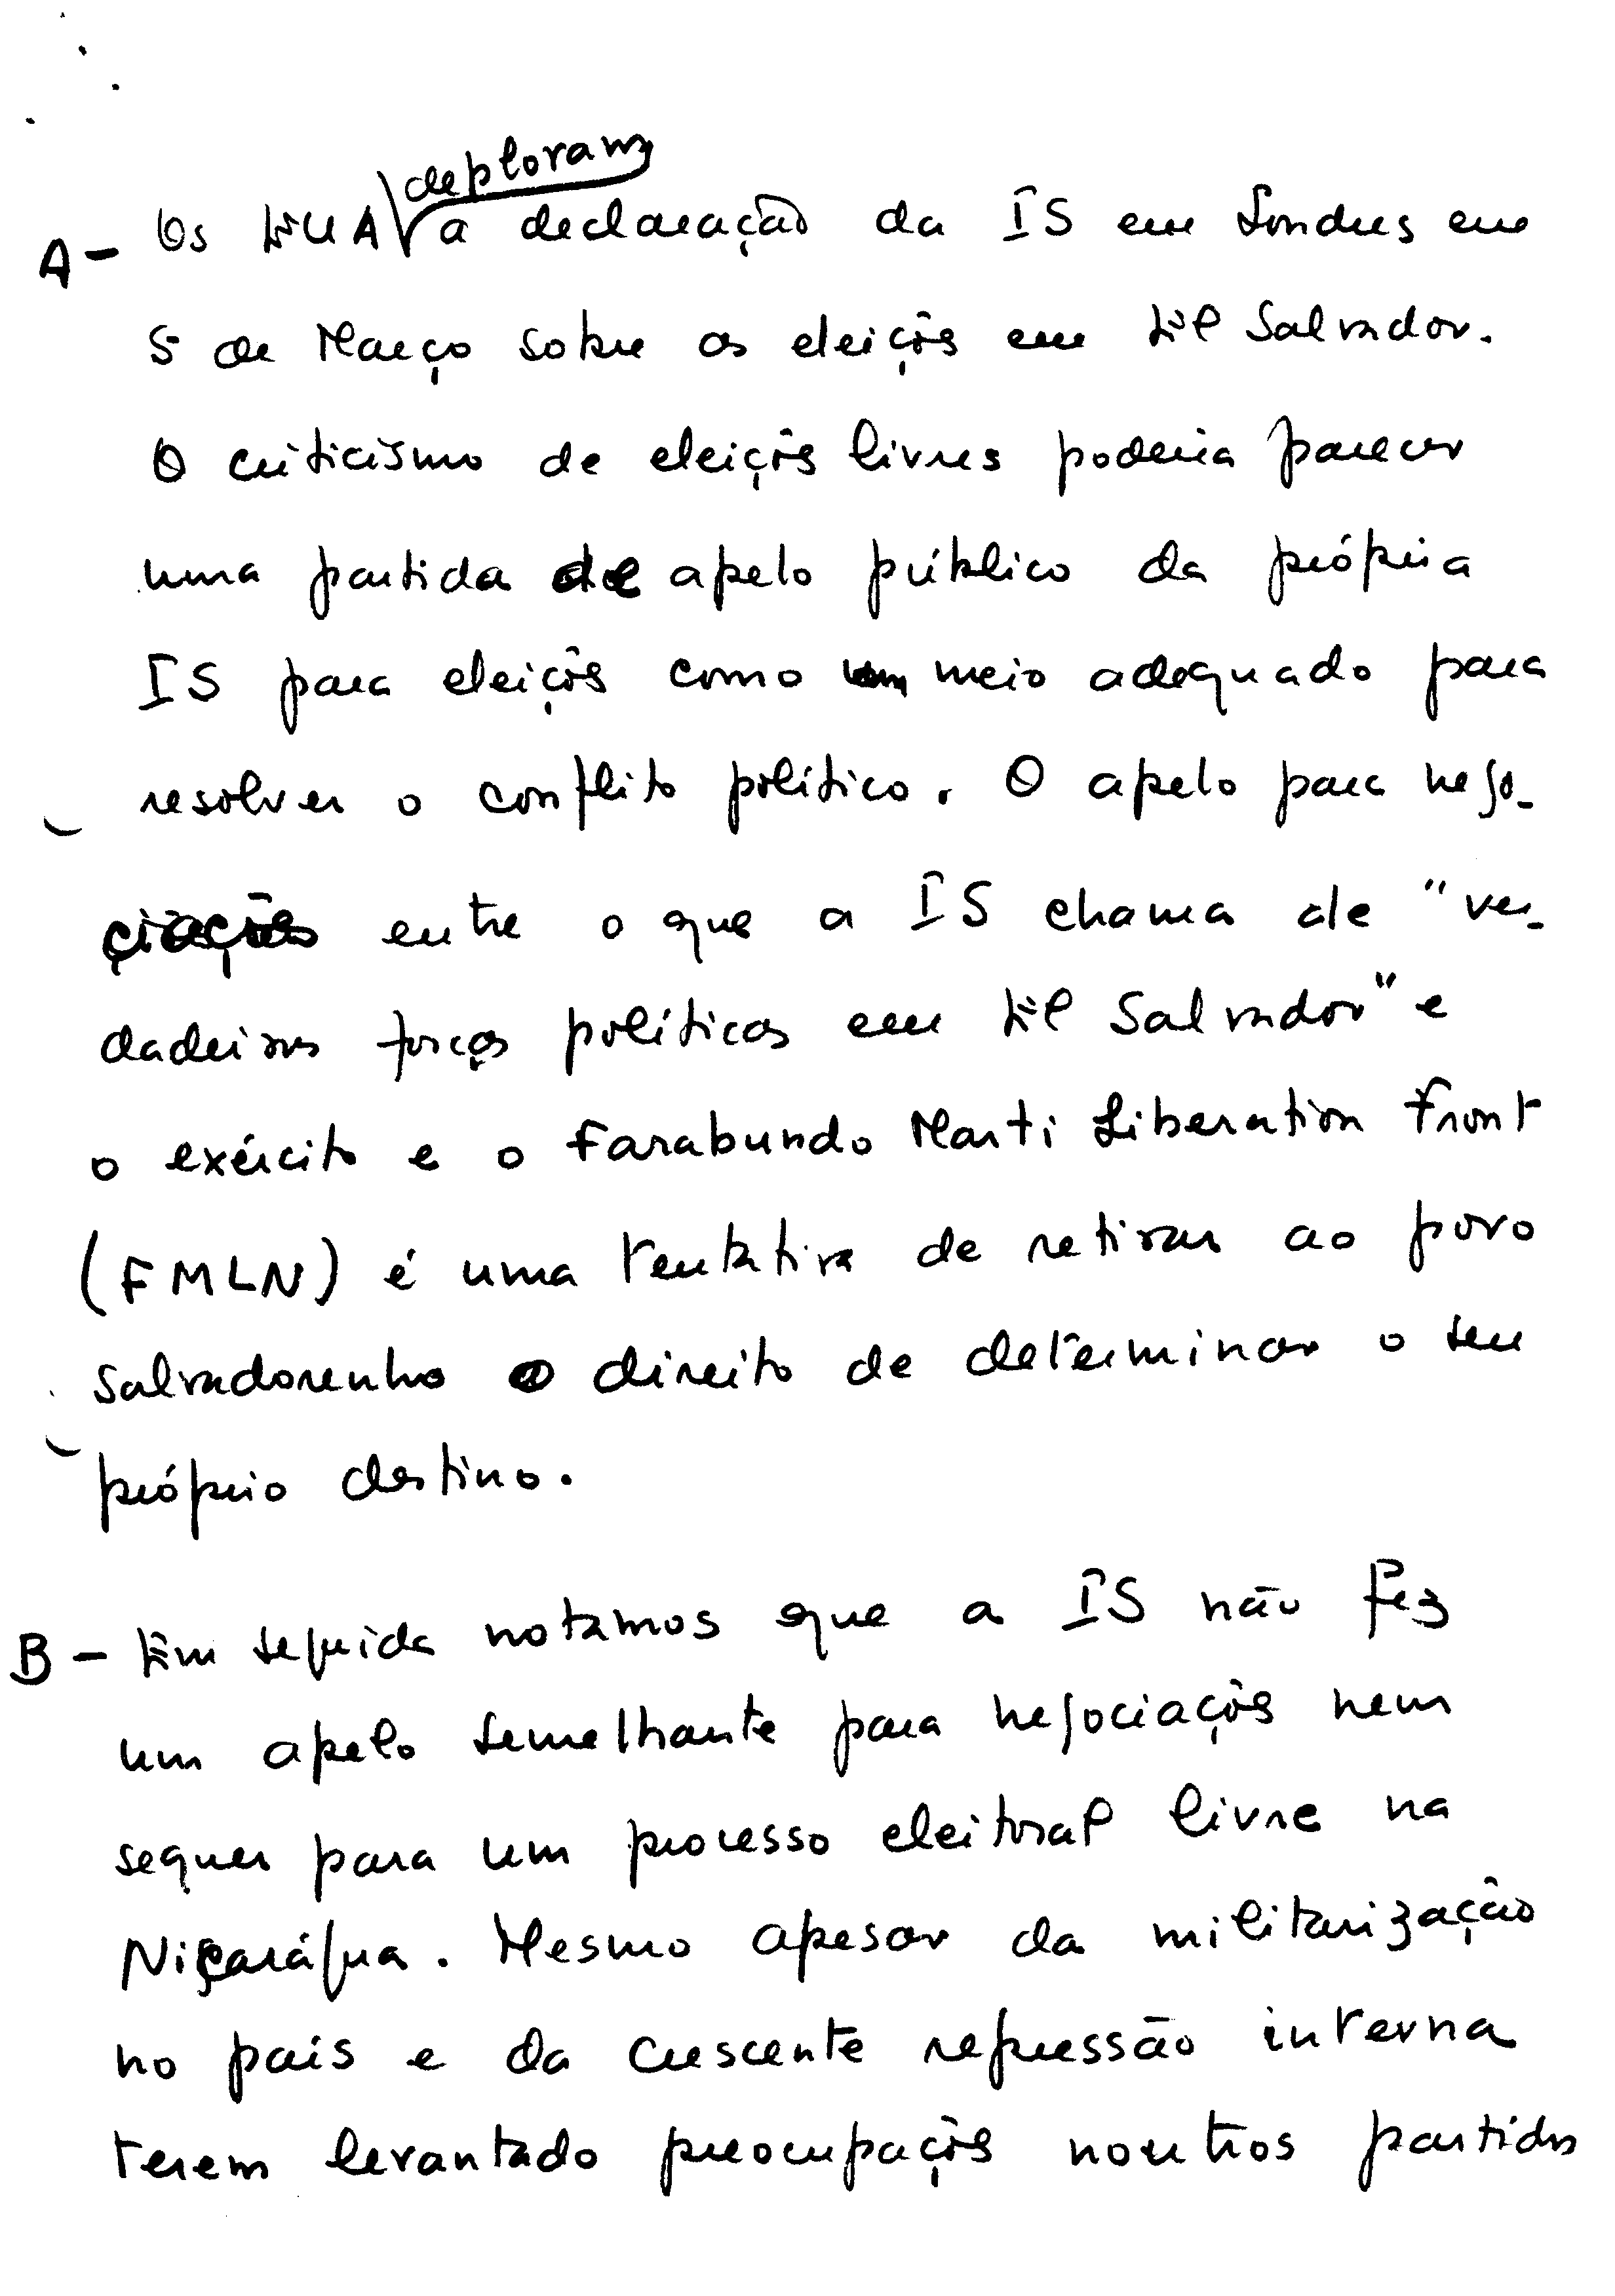 deploram
A - Os EUA a declaração da IS em Londres em
5 de Março sobre as eleições em El Salvador.
O criticismo de eleições livres poderia parecer
uma partida de apelo público da própria
IS para eleições como um meio adequado para
resolver o conflito político. O apelo para nego-
ciações entre o que a IS chama de "ver-
dadeiras forças políticas em El Salvador" e
o exército e o Farabundo Marti Liberation Front
(FMLN) é uma tentativa de retirar ao povo
salvadorenho o direito de determinar o seu
próprio destino.
B - Em seguida notamos que a IS não fez
um apelo semelhante para negociações nem
sequer para um processo eleitoral livre na
Nicarágua. Mesmo apesar da militarização
no país e da crescente repressão interna
terem levantado preocupações noutros partidos